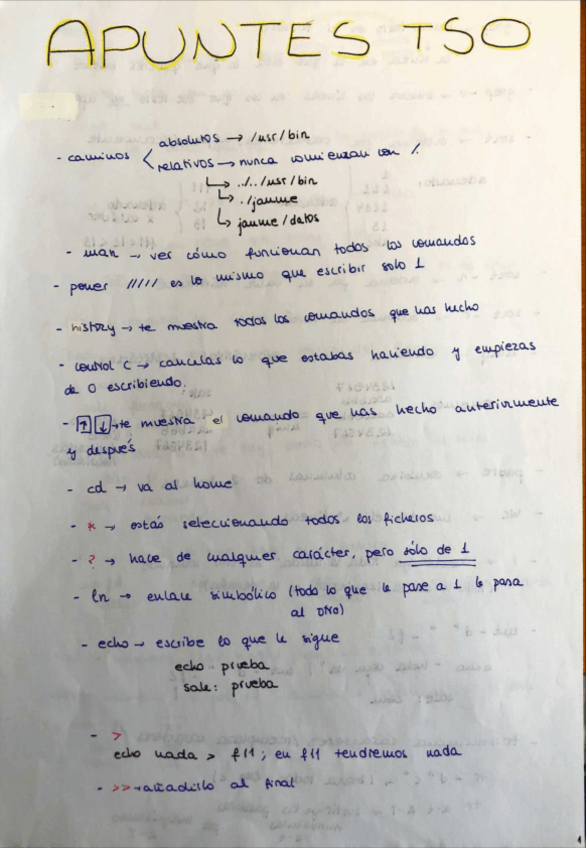 APUNTES TSO
- caminos < absolutos → /usr/bin
relativos → nunca comienzan con /.
↳ ../../usr/bin
↳ ./jaume
↳ jaume/datos
- man → ver cómo funcionan todos los comandos
- poner ///// es lo mismo que escribir solo 1
- history → te muestra todos los comandos que has hecho
- control C → cancelas lo que estabas haciendo y empiezas
de 0 escribiendo.
- ↑ ↓ → te muestra el comando que has hecho anteriormente
y después
- cd → va al home
- * → estás seleccionando todos los ficheros
- ? → hace de cualquier carácter, pero sólo de 1
- ln → enlace simbólico (todo lo que le pase a 1 le pasa
al otro)
- echo → escribe lo que le sigue
echo prueba
sale: prueba
- >
echo nada > f11; en f11 tendremos nada
- >> → añadirlo al final
1